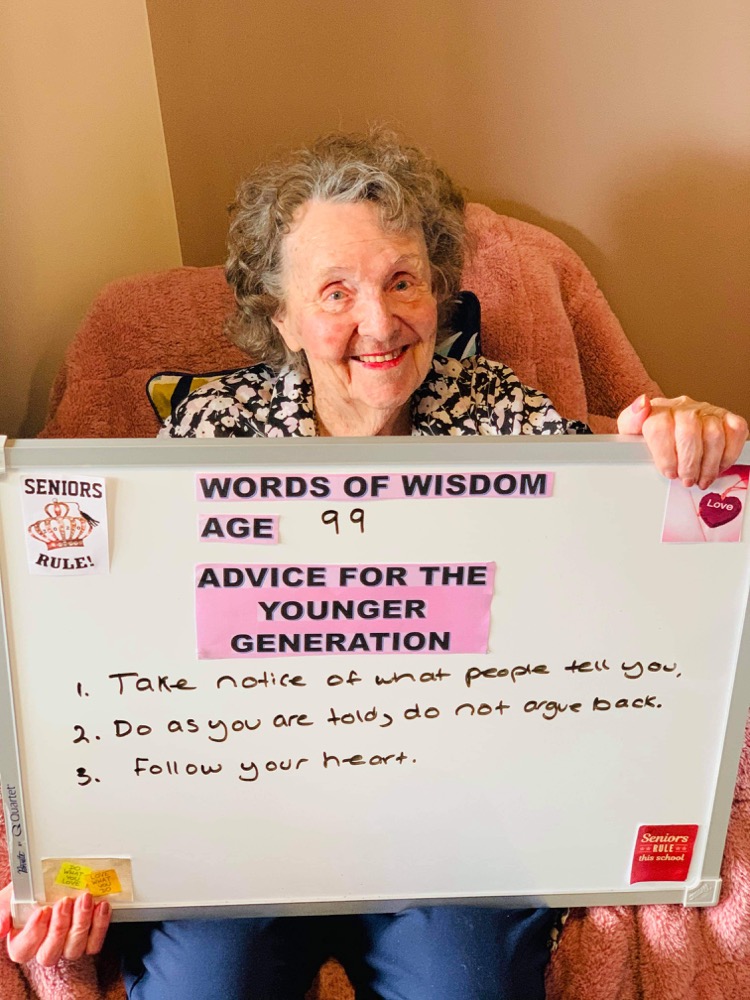 SENIORS
RULE!
WORDS OF WISDOM
AGE 99
Love
ADVICE FOR THE
YOUNGER
GENERATION
1. Take notice of what people tell you.
2. Do as you are told, do not argue back.
3. Follow your heart.
Quartet
DO
WHAT
YOU
LOVE
LOVE
WHAT
YOU
DO
Seniors
RULE
this school